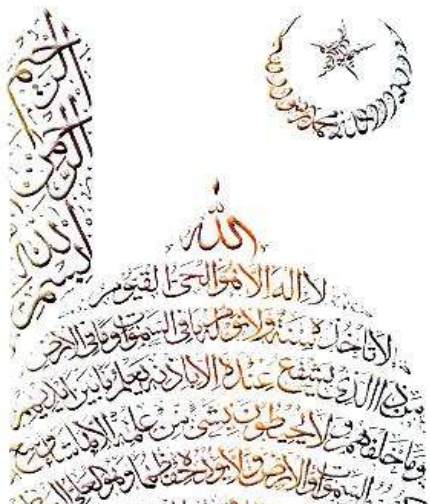 بسم الله الرحمن الرحيم
الله
لا اله الا هو الحي القيوم
لا تاخذه سنة ولا نوم له ما في السموات وما في الارض
من ذا الذي يشفع عنده الا باذنه يعلم ما بين ايديهم
وما خلفهم ولا يحيطون بشيء من علمه الا بما شاء وسع
السموات والارض ولا يوده حفظهما وهو العلي